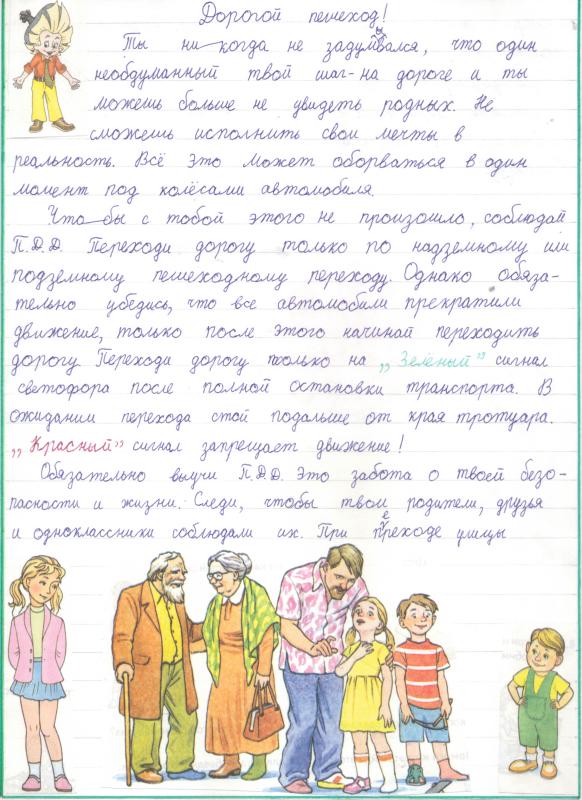 Дорогой пешеход!
Ты ни-когда не задумывался, что один
необдуманный твой шаг-на дороге и ты
можешь больше не увидеть родных. Не
сможешь исполнить свои мечты в
реальность. Всё это может оборваться в один
момент под колёсами автомобиля.
Что-бы с тобой этого не произошло, соблюдай
П.Д.Д. Переходи дорогу только по надземному или
подземному пешеходному переходу. Однако обяза-
тельно убедись, что все автомобили прекратили
движение, только после этого начинай переходить
дорогу Переходи дорогу только на „Зелёный” сигнал
светофора после полной остановки транспорта. В
ожидании перехода стой подальше от края тротуара.
„Красный” сигнал запрещает движение!
Обязательно выучи П.Д.Д. Это забота о твоей безо-
пасности и жизни. Следи, чтобы твои родители, друзья
и одноклассники соблюдали их. При переходе улицы